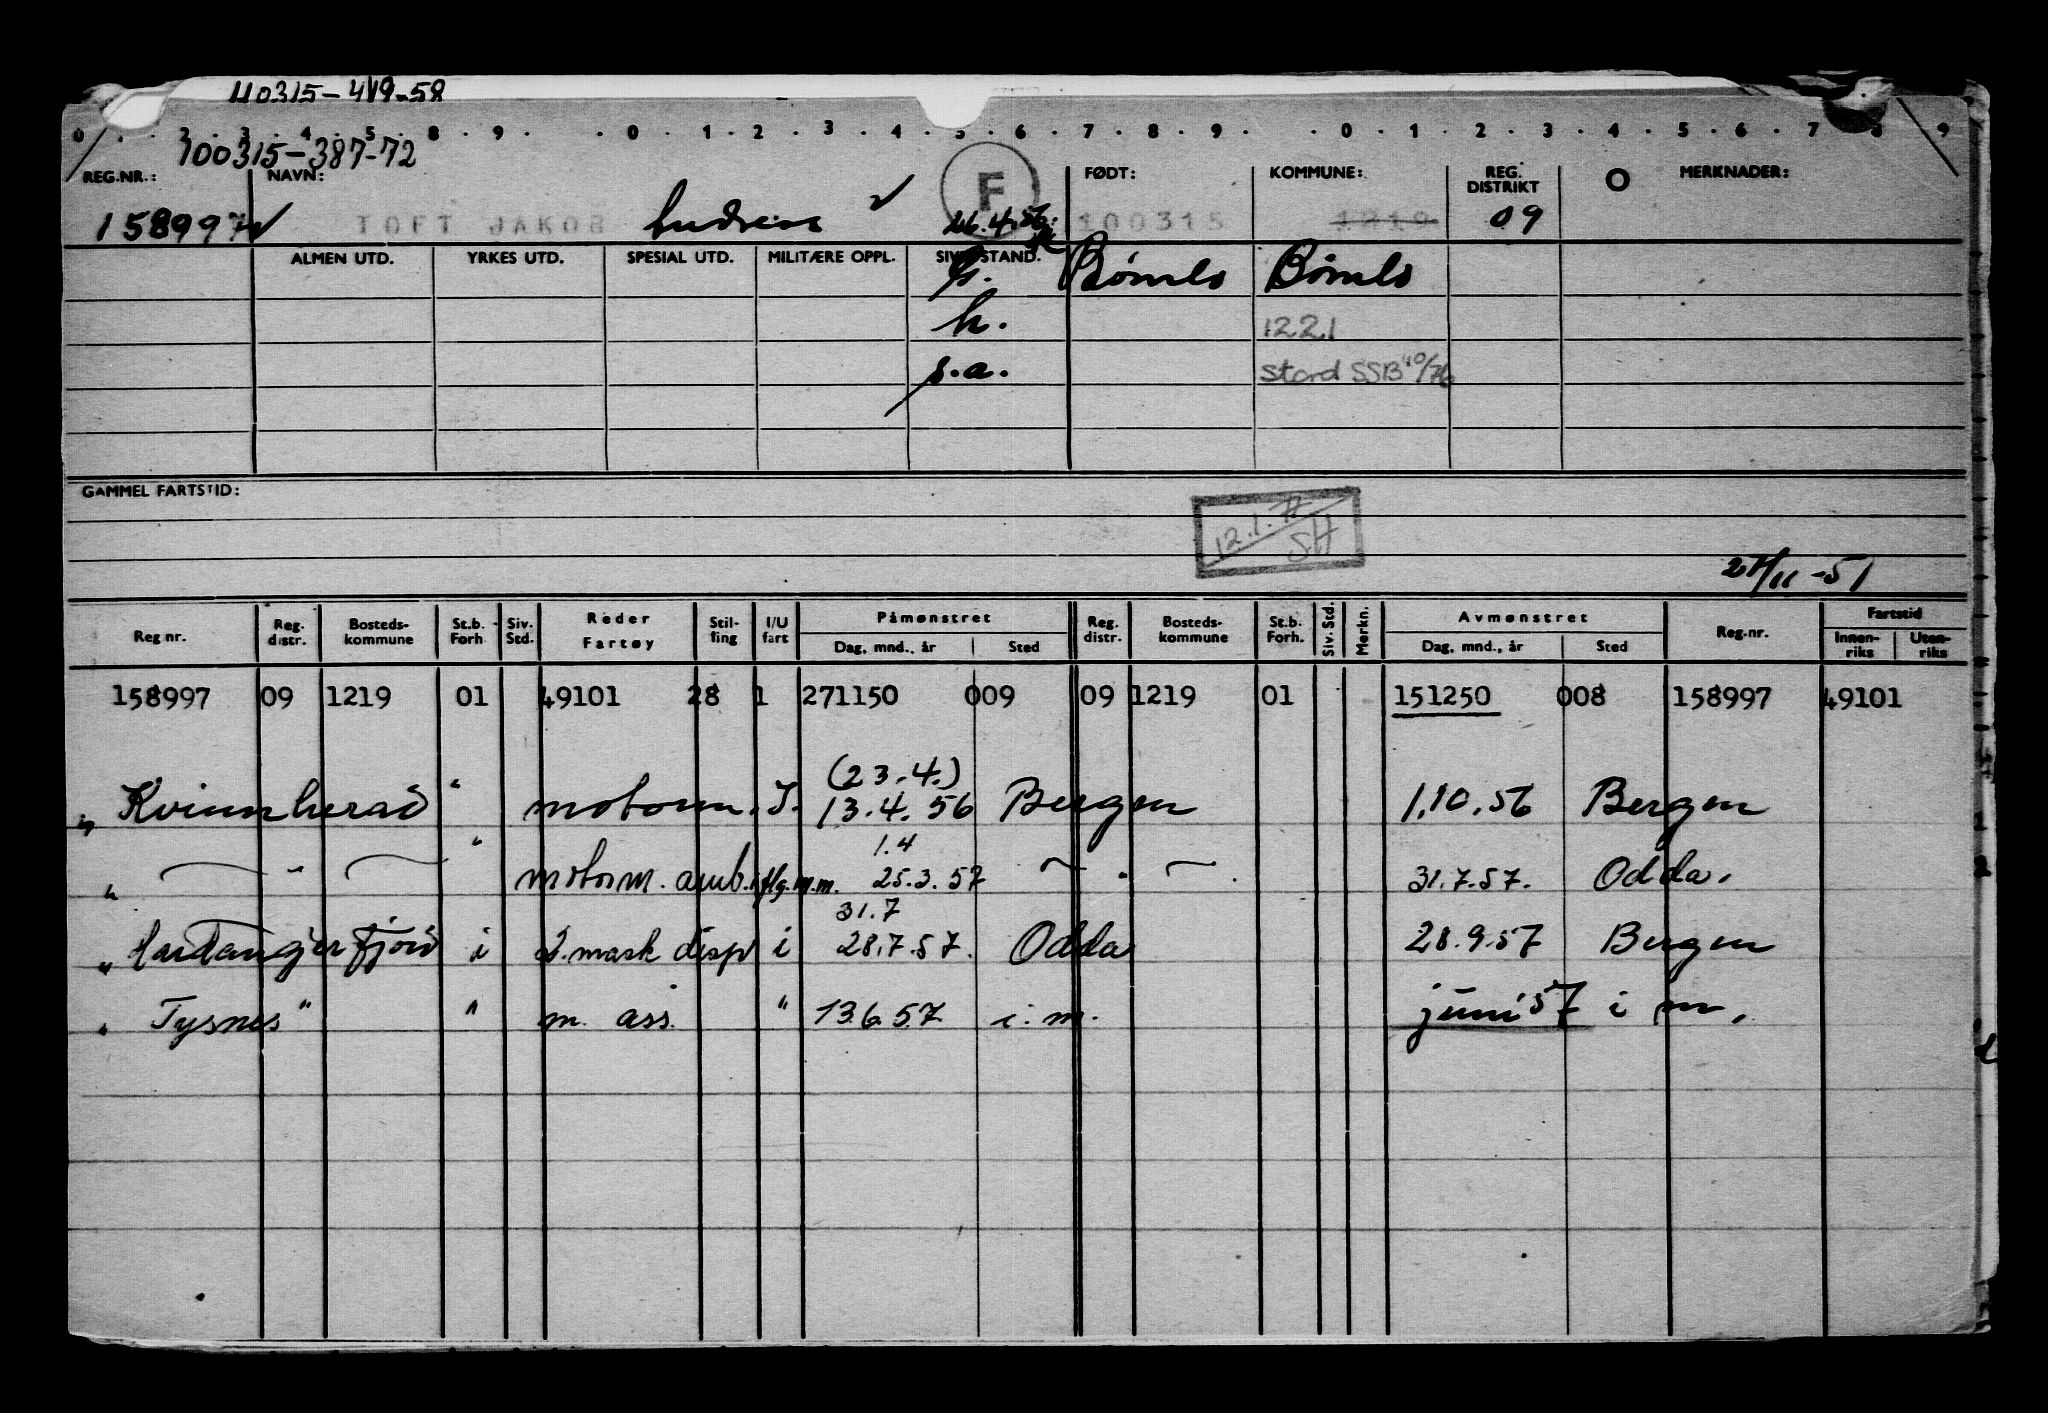 110315-419-58
0 . . 2 . 3 . 4 . 5 . 8 . 9 . . 0 . 1 . 2 . 3 . 4 . 5 . 6 . 7 . 8 . 9 . . 0 . 1 . 2 . 3 . 4 . 5 . 6 . 7 . 8 . 9
100315-387-72
REG.NR.: NAVN: F FØDT: KOMMUNE: REG. DISTRIKT O MERKNADER:
158997 TOFT JAKOB Andreas 26.4.56 100315 1219 09
ALMEN UTD. YRKES UTD. SPESIAL UTD. MILITÆRE OPPL. SIVILSTAND. Bømlo Bømlo
h. 1221
s.a. Stord SSB 40/76
GAMMEL FARTSTID:
12.1.77 SH
27/11-51
Reg nr. Reg. distr. Bosteds-kommune St.b. Forh. Siv. Std. Reder Fartøy Stil-ling I/U fart Påmønstret Dag, mnd., år Sted Reg. distr. Bosteds-kommune St.b. Forh. Siv. Std. Merkn. Avmønstret Dag, mnd., år Sted Reg.nr. Fartstid Innen-riks Uten-riks
158997 09 1219 01 49101 28 1 271150 009 09 1219 01 151250 008 158997 49101
(23.4.)
" Kvinnherad " motorm. I. 13.4.56 Bergen 1.10.56 Bergen
1.4
" — " — " motorm. amb. flg. m.m. 25.3.57 — " — 31.7.57. Odda.
31.7
" Hardangerfjord i 2. mask disp i 28.7.57. Odda 28.9.57 Bergen
" Tysnes " " m. ass. " 13.6.57 i. m. juni 57 i m.